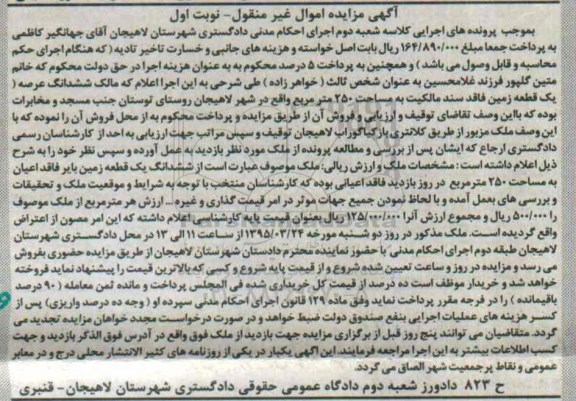 آگهی مزایده اموال غیر منقول- نوبت اول
بموجب پرونده های اجرایی کلاسه شعبه دوم اجرای احکام مدنی دادگستری شهرستان لاهیجان آقای جهانگیر کاظمی
به پرداخت جمعا مبلغ ۱۶۴/۸۹۰/۰۰۰ ریال بابت اصل خواسته و هزینه های جانبی و خسارت تاخیر تادیه (که هنگام اجرای حکم
محاسبه و قابل وصول می باشد) و همچنین به پرداخت ۵ درصد محکوم به به عنوان هزینه اجرا در حق دولت محکوم که خانم
متین گلپور فرزند غلامحسین به عنوان شخص ثالث (خواهر زاده) طی شرحی به این اجرا اعلام که مالک ششدانگ عرصه (
یک قطعه زمین فاقد سند مالکیت به مساحت ۲۵۰ متر مربع واقع در شهر لاهیجان روستای توستان جنب مسجد و مخابرات
بوده که بااین وصف تقاضای توقیف و ارزیابی و فروش آن از طریق مزایده و پرداخت محکوم به از محل فروش آن را نموده که با
این وصف ملک مزبور از طریق کلانتری بازکیاگوراب لاهیجان توقیف و سپس مراتب جهت ارزیابی به احد از کارشناسان رسمی
دادگستری ارجاع که ایشان پس از بررسی و مطالعه پرونده از ملک مورد نظر بازدید به عمل آورده و سپس نظر خود را به شرح
ذیل اعلام داشته است: مشخصات ملک و ارزش ریالی: ملک موصوف عبارت است از ششدانگ یک قطعه زمین بایر فاقد اعیان
به مساحت ۲۵۰ مترمربع در روز بازدید فاقد اعیانی بوده که کارشناسان منتخب با توجه به شرایط و موقعیت ملک و تحقیقات
و بررسی های بعمل آمده و با لحاظ نمودن جمیع جهات موثر در امر قیمت گذاری و غیره... ارزش هر مترمربع از ملک موصوف
را ۵۰۰/۰۰۰ ریال و مجموع ارزش آنرا ۱۲۵/۰۰۰/۰۰۰ ریال بعنوان قیمت پایه کارشناسی اعلام داشته که این امر مصون از اعتراض
واقع گردیده است. ملک مذکور در روز دو شنبه مورخه ۱۳۹۵/۰۳/۲۴ از ساعت ۱۱ الی ۱۳ در محل دادگستری شهرستان
لاهیجان طبقه دوم اجرای احکام مدنی با حضور نماینده محترم دادستان شهرستان لاهیجان از طریق مزایده حضوری بفروش
می رسد و مزایده در روز و ساعت تعیین شده شروع و از قیمت پایه شروع و کسی که بالاترین قیمت را پیشنهاد نماید فروخته
خواهد شد و خریدار موظف است ده درصد از قیمت کل خریداری شده فی المجلس پرداخت و مانده ثمن معامله (۹۰ درصد
باقیمانده) را در فرجه مقرر پرداخت نماید وفق ماده ۱۲۹ قانون اجرای احکام مدنی سپرده او (وجه ده درصد واریزی) پس از
کسر هزینه های عملیات اجرایی بنفع صندوق دولت ضبط خواهد و در صورت درخواست مجدد خواهان مزایده تجدید می
گردد. متقاضیان می توانند پنج روز قبل از برگزاری مزایده جهت بازدید از ملک فوق واقع در آدرس فوق الذکر بازدید و جهت
کسب اطلاعات بیشتر به این اجرا مراجعه فرمایند. این آگهی یکبار در یکی از روزنامه های کثیر الانتشار محلی درج و در معابر
عمومی و نقاط پرجمعیت شهر الصاق می گردد.
ح ۸۲۳ دادورز شعبه دوم دادگاه عمومی حقوقی دادگستری شهرستان لاهیجان- قنبری